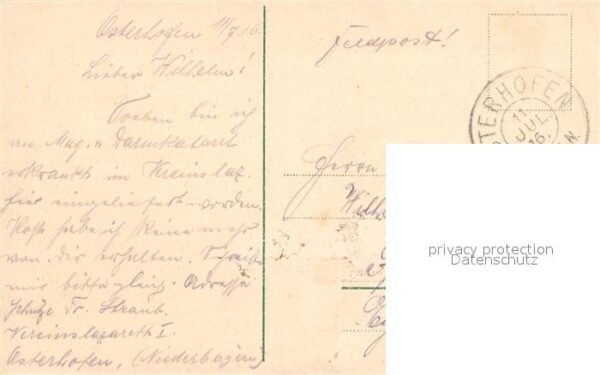 Osterhofen 11/7.16.
Lieber Wilhelm!
Soeben bin ich
an Mag. u Darmkatarrh
erkrankt im Vereinslaz.
hier eingeliefert worden.
habe ich keine mehr
von dir erhalten. Schreibe
mir bitte gleich. Adresse
Schütze Fr. Straub.
Vereinslazarett I.
Osterhofen, (Niederbayern)
Feldpost!
OSTERHOFEN
11
JUL.
16.
Herrn
privacy protection
Datenschutz